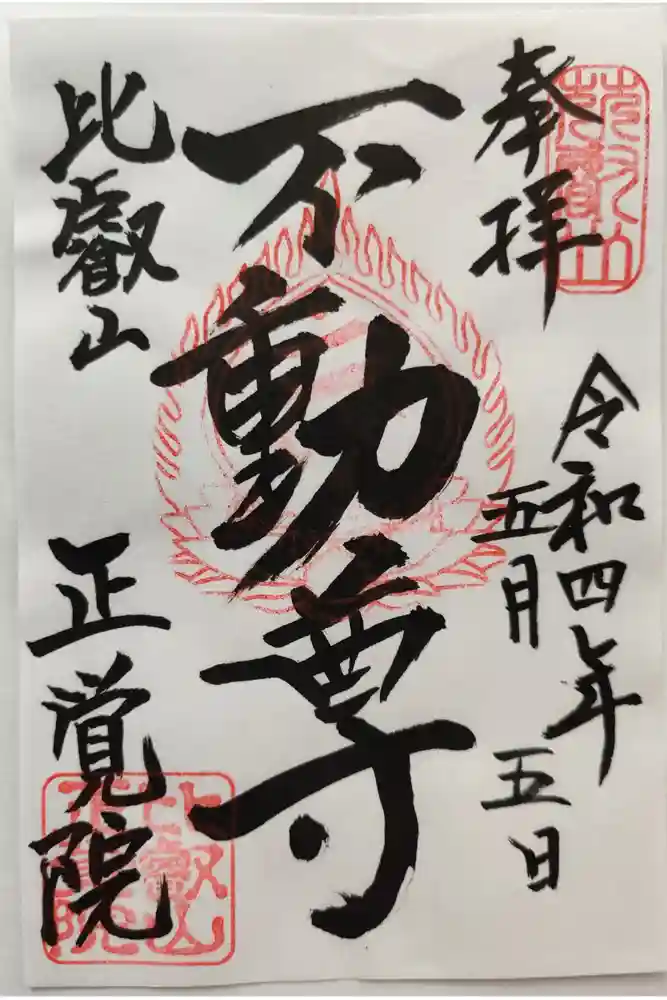 奉拝
令和四年
五月五日
不動尊
比叡山
正覚院
比叡山
正覚院